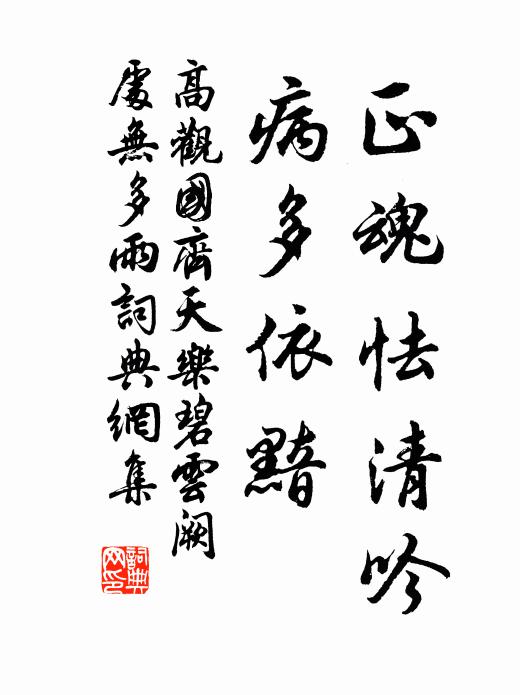 正魂怯清吟
病多依黯
高觀國齊天樂碧雲闕
處無多雨詞典網集
詞典
网印